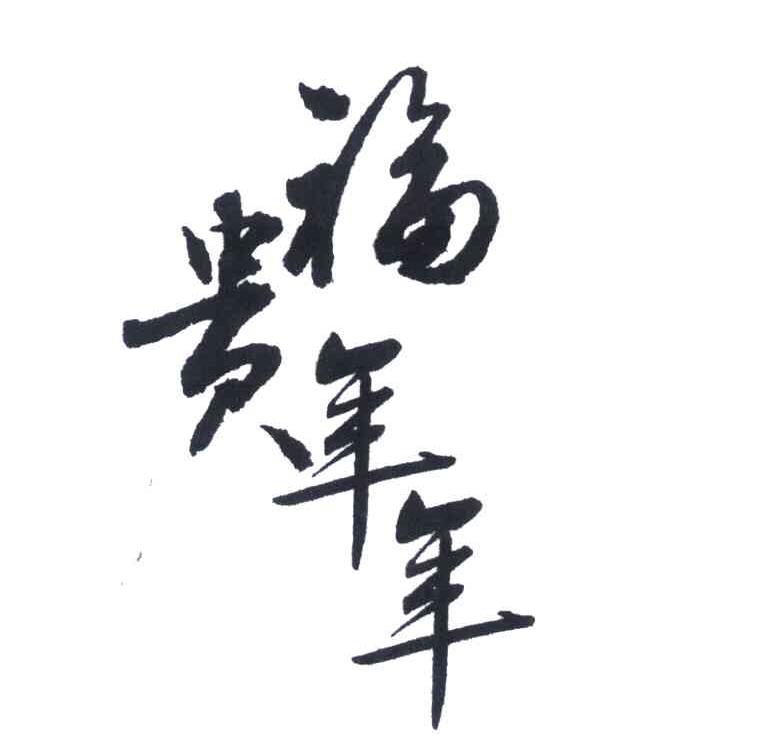 福贵年年